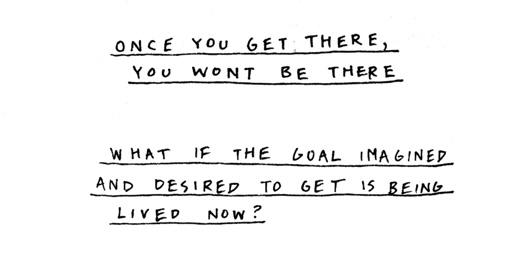 ONCE YOU GET THERE,
YOU WONT BE THERE
WHAT IF THE GOAL IMAGINED
AND DESIRED TO GET IS BEING
LIVED NOW?